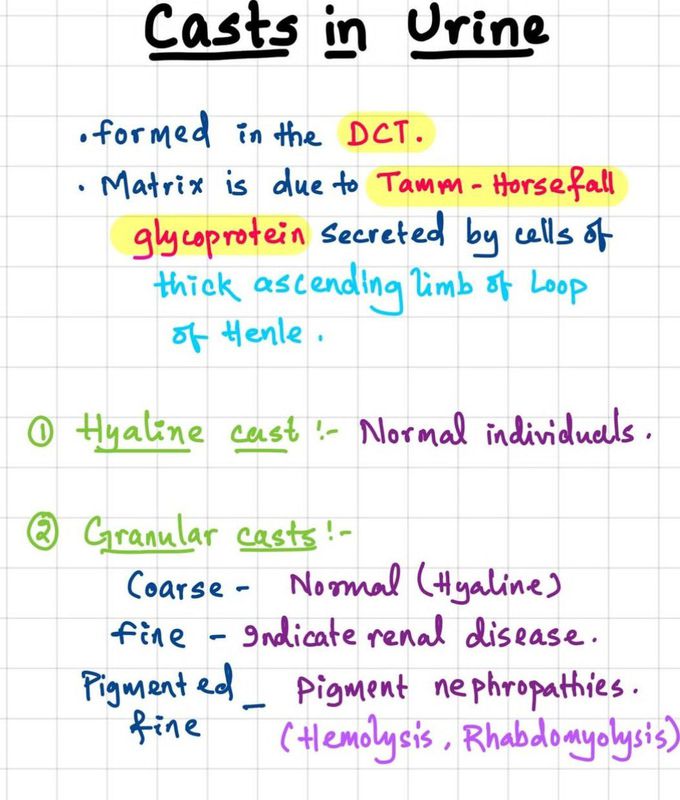 Casts in Urine
• formed in the DCT.
• Matrix is due to Tamm - Horsefall
glycoprotein secreted by cells of
thick ascending limb of Loop
of Henle.
① Hyaline cast :- Normal individuals.
② Granular casts :-
Coarse - Normal (Hyaline)
fine - Indicate renal disease.
Pigmented - Pigment nephropathies.
fine (Hemolysis, Rhabdomyolysis)